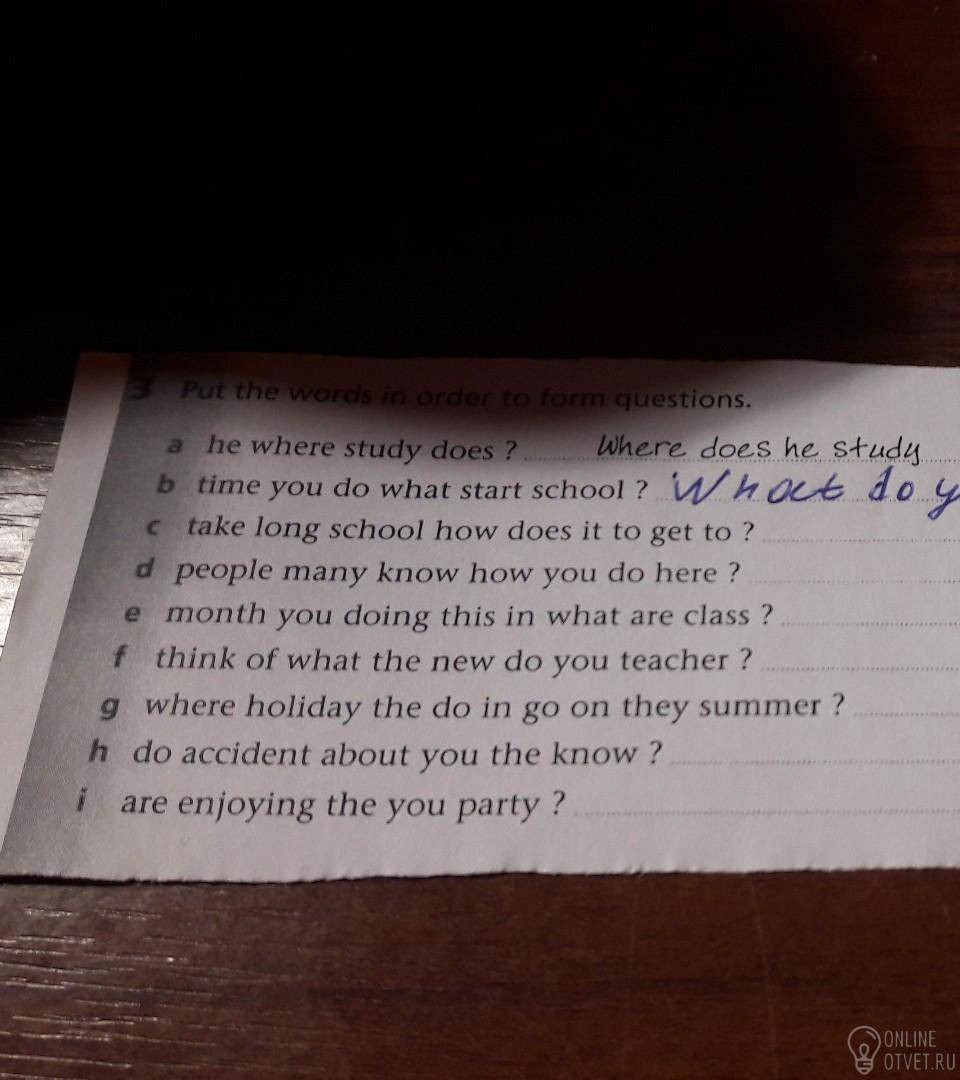 3 Put the words in order to form questions.
a he where study does ? Where does he study
b time you do what start school ? What do y
c take long school how does it to get to ?
d people many know how you do here ?
e month you doing this in what are class ?
f think of what the new do you teacher ?
g where holiday the do in go on they summer ?
h do accident about you the know ?
i are enjoying the you party ?
ONLINE
OTVET.RU